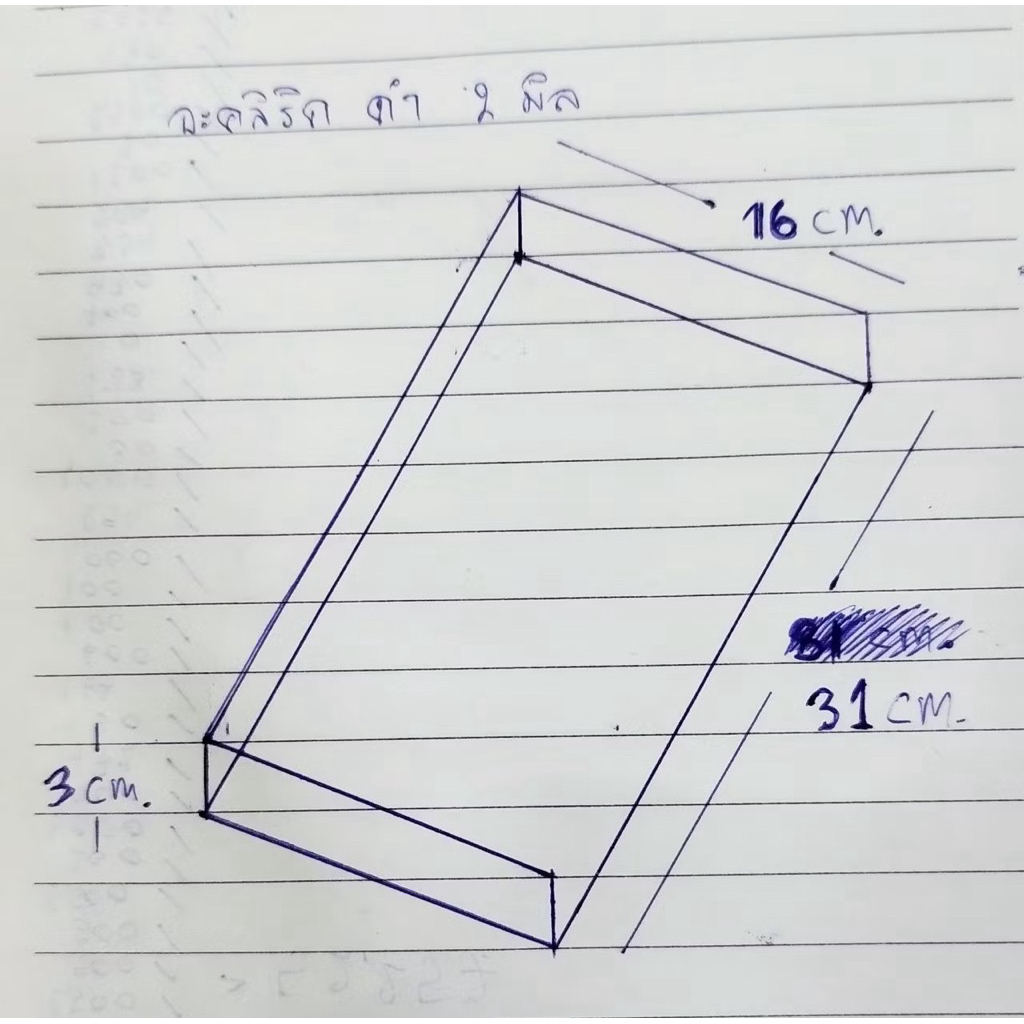 อะคลิริค ดำ 2 มิล
16 cm.
31 cm.
31 cm.
3 cm.